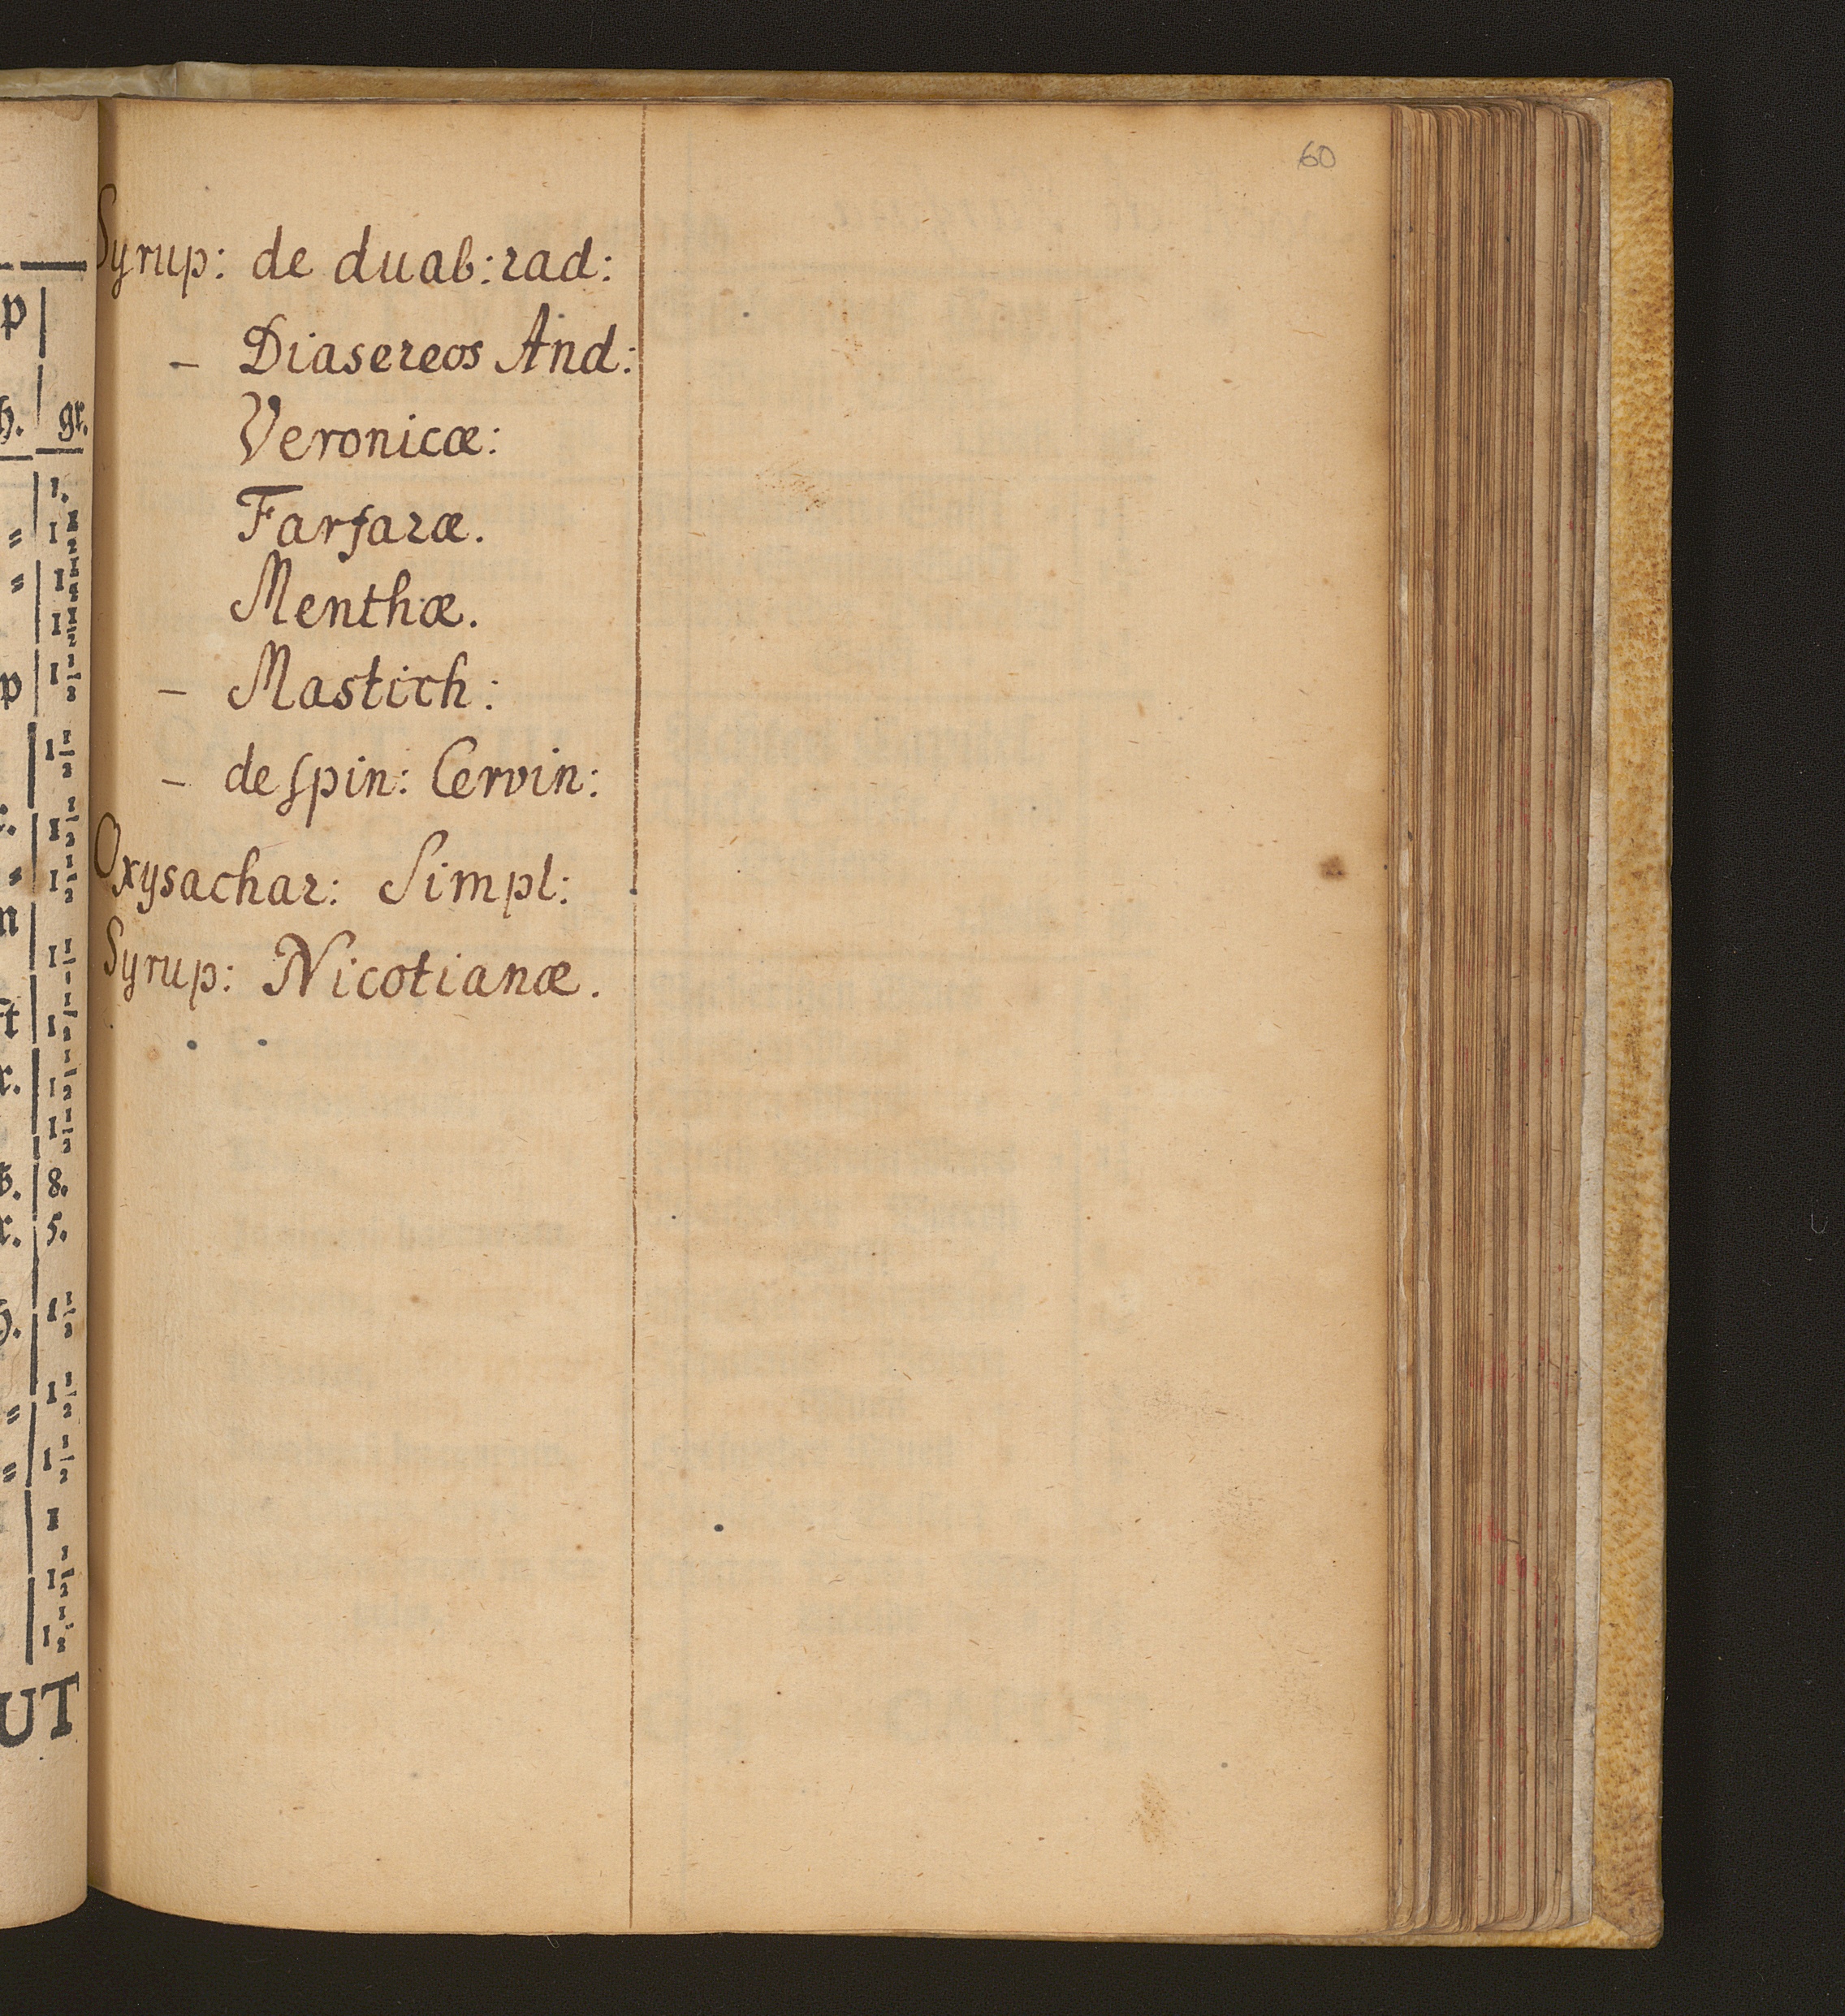 60
Syrup: de duab: rad:
– Diasereos And:
Veronicæ:
Farfaræ.
Menthæ.
– Mastich:
– de spin: Cervin:
Oxysachar: Simpl:
Syrup: Nicotianæ.
p
gr.
n
8.
5.
UT